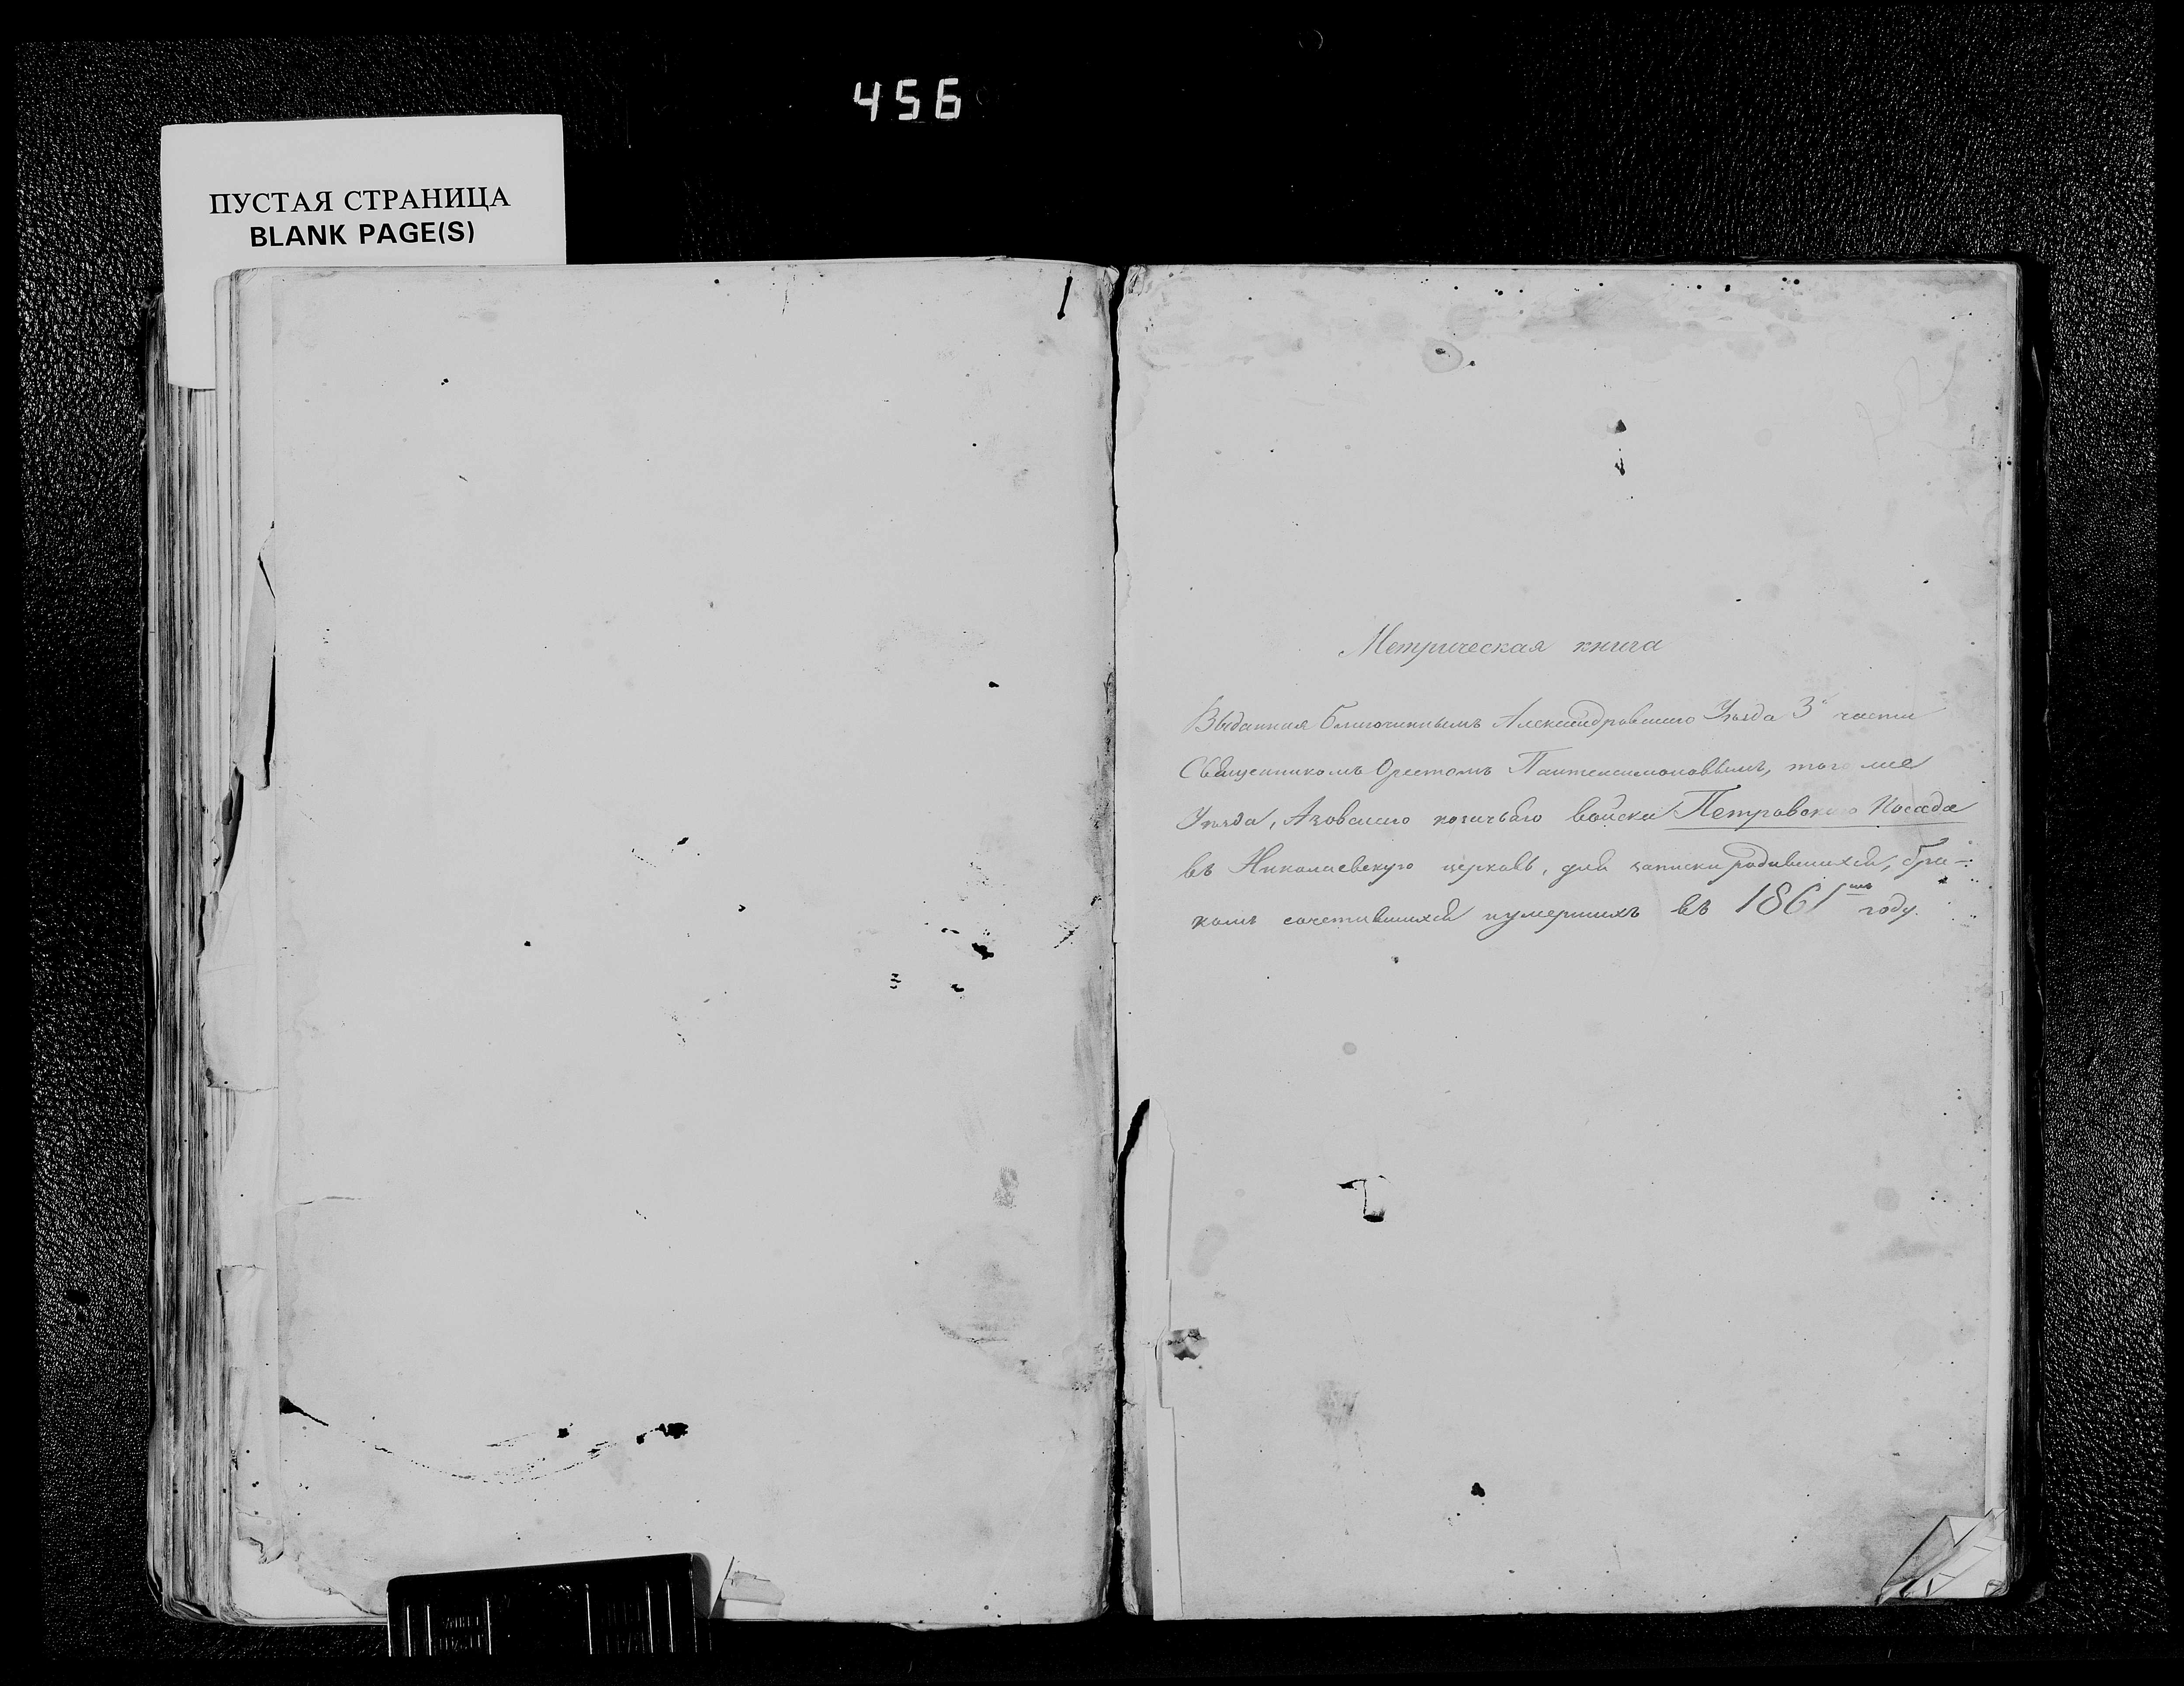 456
ПУСТАЯ СТРАНИЦА
BLANK PAGE(S)
Метрическая книга
Выданная Благочиннымъ Александровскаго Уѣзда 3й части
Священникомъ Орестомъ Пантелеимоновымъ, того же
Уѣзда, Азовскаго козачьяго войска Петровскаго Посада
въ Николаевскую церковь, для записки родившихся, бра-
комъ сочетавшихся и умершихъ въ 1861мъ году.